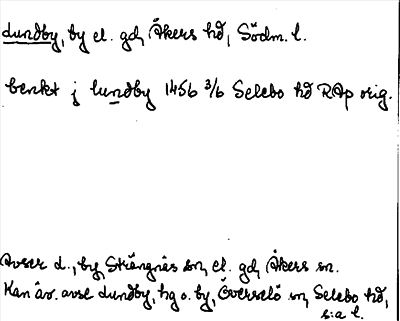 Lundby, by el. gd, Åkers hd, Södm. l.
benkt j lundby 1456 3/6 Selebo hd RAp orig.
Avser L., by, Strängnäs sn, el. gd, Åkers sn.
Kan äv. avse Lundby, hg o. by, Överselö sn, Selebo hd,
s:a l.